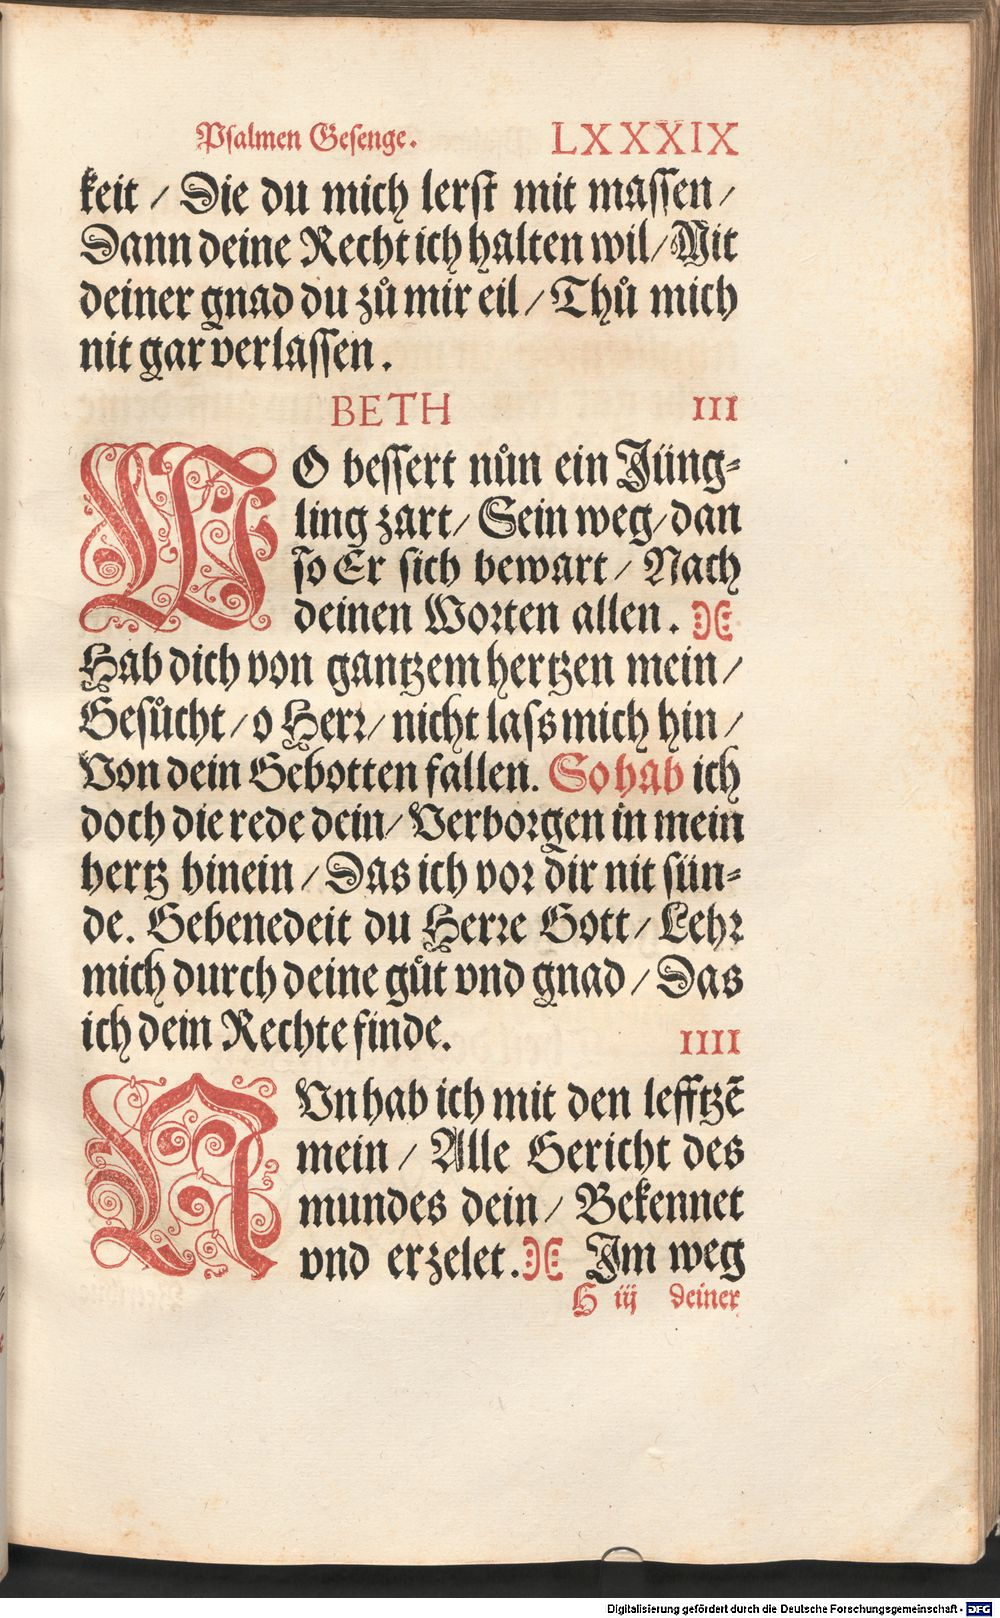 Psalmen Gesenge. LXXXIX
keit / Die du mich lerst mit massen /
Dann deine Recht ich halten wil / Mit
deiner gnad du zů mir eil / Thů mich
nit gar verlassen.
BETH III
WO bessert nůn ein Jüng=
ling zart / Sein weg / dan
so Er sich bewart / Nach
deinen Worten allen.
Hab dich von gantzem hertzen mein /
Gesůcht / o Herr / nicht lass mich hin /
Von dein Gebotten fallen. So hab ich
doch die rede dein / Verborgen in mein
hertz hinein / Das ich vor dir nit sün=
de. Gebenedeit du Herre Gott / Lehr
mich durch deine gůt vnd gnad / Das
ich dein Rechte finde.
IIII
NVn hab ich mit den lefftzē
mein / Alle Gericht des
mundes dein / Bekennet
vnd erzelet. Im weg
H iij deiner
Digitalisierung gefördert durch die Deutsche Forschungsgemeinschaft - DFG